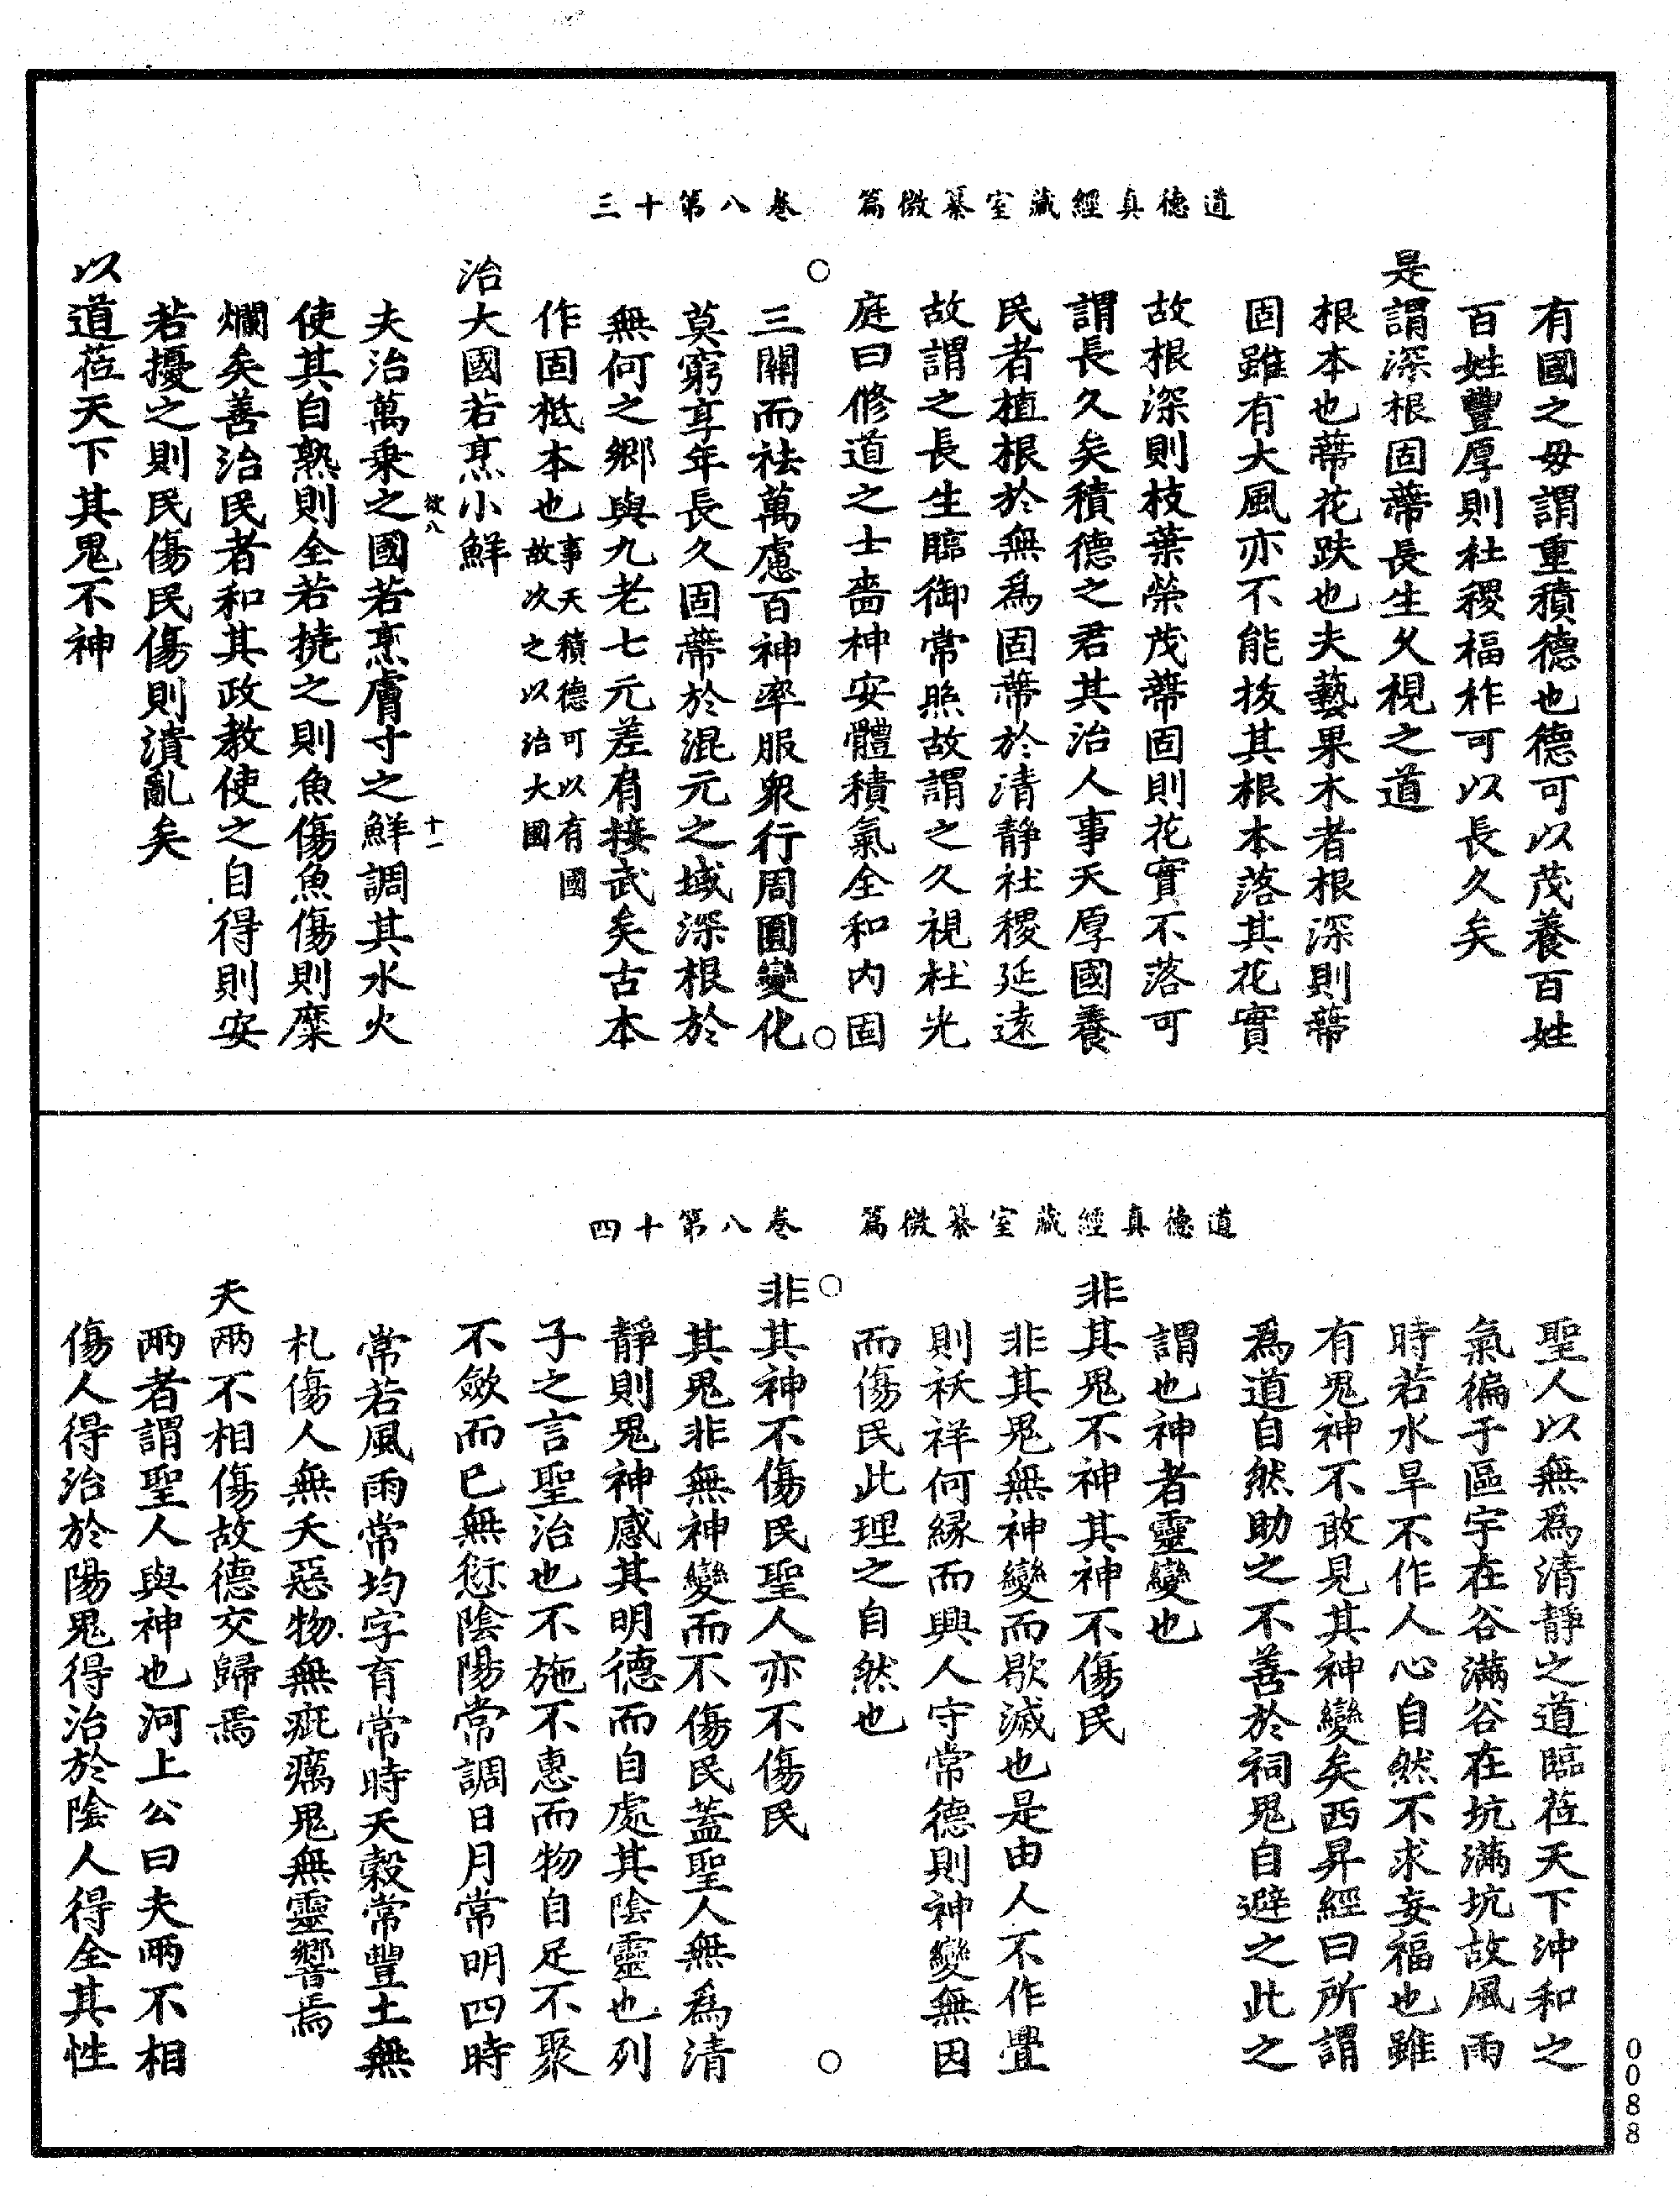 道德真經藏室纂微篇　卷八第十三
有國之母謂重積德也德可以茂養百姓
百姓豐厚則社稷福祚可以長久矣
是謂深根固蔕長生久視之道
根本也蔕花趺也夫藝果木者根深則蔕
固雖有大風亦不能拔其根本落其花實
故根深則枝葉榮茂蔕固則花實不落可
謂長久矣積德之君其治人事天厚國養
民者植根於無爲固蔕於清静社稷延遠
故謂之長生臨御常照故謂之久視杜光
庭曰修道之士嗇神安體積氣全和内固
三關而祛萬慮百神率服衆行周圓變化
莫窮享年長久固蔕於混元之域深根於
無何之鄉與九老七元差肩接武矣古本
作固柢本也事天積德可以有國故次之以治大國
治大國若烹小鮮
夫治萬乗之國若烹膚寸之鮮調其水火
使其自熟則全若撓之則魚傷魚傷則糜
爛矣善治民者和其政教使之自得則安
若擾之則民傷民傷則潰亂矣
以道莅天下其鬼不神
欲八　十一
道德真經藏室纂微篇　卷八第十四
聖人以無爲清靜之道臨莅天下沖和之
氣徧于區宇在谷滿谷在坑滿坑故風雨
時若水旱不作人心自然不求妄福也雖
有鬼神不敢見其神變矣西昇經曰所謂
爲道自然助之不善於祠鬼自避之此之
謂也神者靈變也
非其鬼不神其神不傷民
非其鬼無神變而歇滅也是由人不作舋
則祅祥何緣而興人守常德則神變無因
而傷民此理之自然也
非其神不傷民聖人亦不傷民
其鬼非無神變而不傷民蓋聖人無爲清
靜則鬼神感其明德而自處其陰靈也列
子之言聖治也不施不惠而物自足不聚
不斂而已無愆陰陽常調日月常明四時
常若風雨常均字育常時天穀常豐土無
札傷人無夭惡物無疵癘鬼無靈響焉
夫兩不相傷故德交歸焉
兩者謂聖人與神也河上公曰夫兩不相
傷人得治於陽鬼得治於陰人得全其性
0088